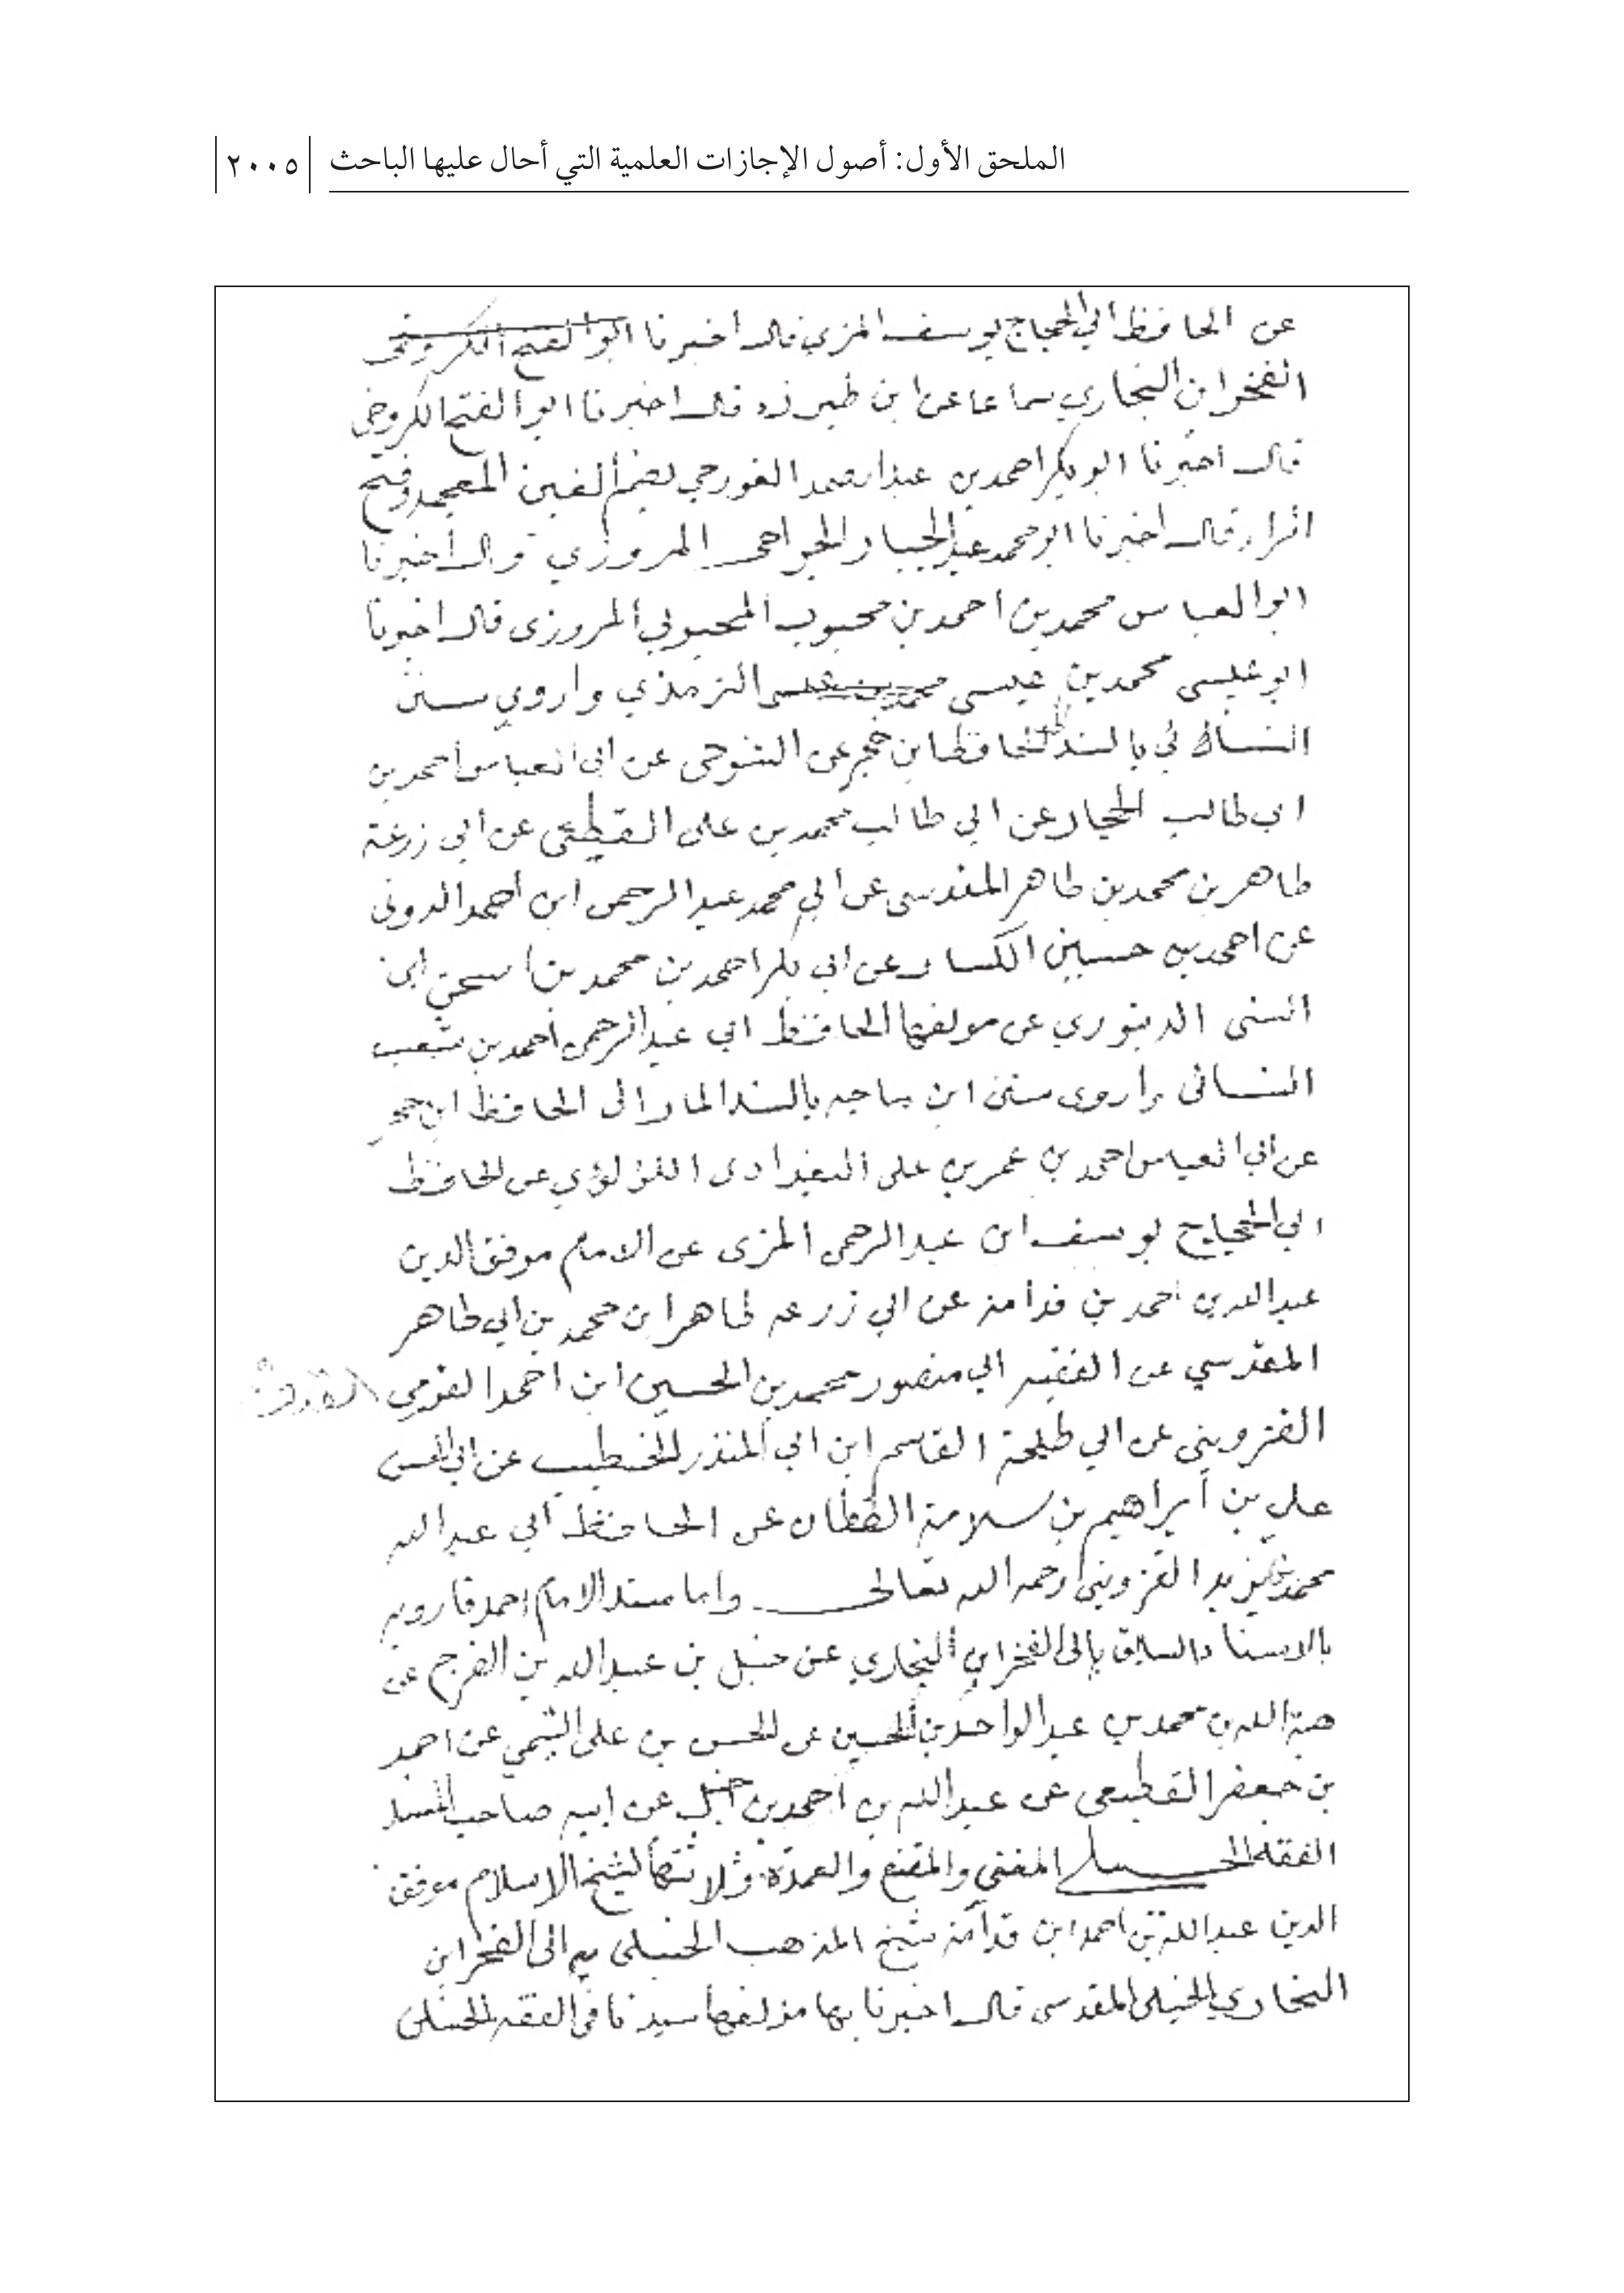 الملحق الأول: أصول الإجازات العلمية التي أحال عليها الباحث ٢٠٠٥
عن الحافظ ابي الحجاج يوسف المزي قال اخبرنا ابو الفتح الكروخي
الفخر ابن البخاري سماعا عن ابن طبرزد قال اخبرنا ابو الفتح الكروخي
قال اخبرنا ابو بكر احمد بن عبد الصمد الغورجي بضم الغين المعجمة وفتح
الراء قال اخبرنا ابو محمد عبد الجبار الجراحي المروزي قال اخبرنا
ابو العباس محمد بن احمد بن محبوب المحبوبي المروزي قال اخبرنا
ابو عيسى محمد بن عيسى محمد بن عيسى الترمذي واروي سنن
بالسند للحافظ ابن حجر عن التنوخي عن ابي العباس احمد بن
ابي طالب الحجار عن ابي طالب محمد بن علي القطيعي عن ابي زرعة
طاهر بن محمد بن طاهر المقدسي عن ابي محمد عبد الرحمن ابن احمد الدوني
عن احمد بن حسين الكسار عن ابي بكر احمد بن محمد بن اسحق ابن
السني الدينوري عن مولفها الحافظ ابي عبد الرحمن احمد بن شعيب
النسائي واروي سنن ابن ماجه بالسند المار الى الحافظ ابن حجر
عن ابي العباس احمد بن عمر بن علي البغدادي اللؤلؤي عن الحافظ
ابي الحجاج يوسف ابن عبد الرحمن المزي عن الامام موفق الدين
عبد الله بن احمد بن قدامة عن ابي زرعه طاهر ابن محمد بن ابي طاهر
المقدسي عن الفقيه ابي منصور محمد بن الحسين ابن احمد القومي
القزويني عن ابي طلحة القاسم ابن ابي المنذر الخطيب عن ابي الحسن
علي بن ابراهيم بن سلامة القطان عن الحافظ ابي عبد الله
محمد بن يزيد القزويني رحمه الله تعالى واما مسند الامام احمد فارويه
بالاسناد السابق الى الفخر ابن البخاري عن حنبل بن عبد الله بن الفرج عن
هبة الله بن محمد بن عبد الواحد بن الحسين عن الحسن بن علي التيمي عن احمد
بن جعفر القطيعي عن عبد الله بن احمد بن حنبل عن ابيه صاحب المسند
الفقه الحنبلي المغني والمقنع والعمدة وثلاثتها لشيخ الاسلام موفق
الدين عبد الله بن احمد ابن قدامة شيخ المذهب الحنبلي به الى الفخر ابن
البخاري الحنبلي المقدسي قال اخبرنا بها مؤلفها سيدنا في الفقه الحنبلي